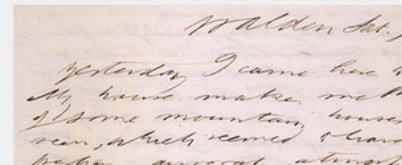 Walden Sat.,
yesterday I came here
My house makes me
of some mountain houses
seen, which seemed to have